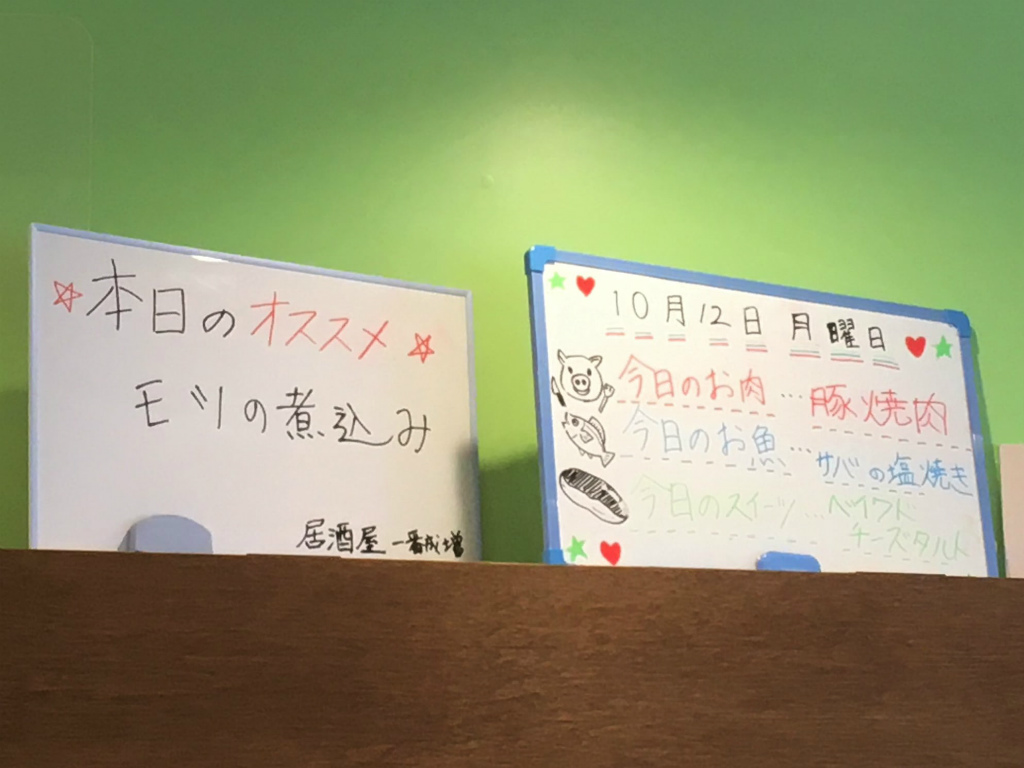 本日のオススメ
モツの煮込み
居酒屋 一番成増
10月12日 月曜日
今日のお肉…豚焼肉
今日のお魚…サバの塩焼き
今日のスイーツ…ベイクド
チーズタルト